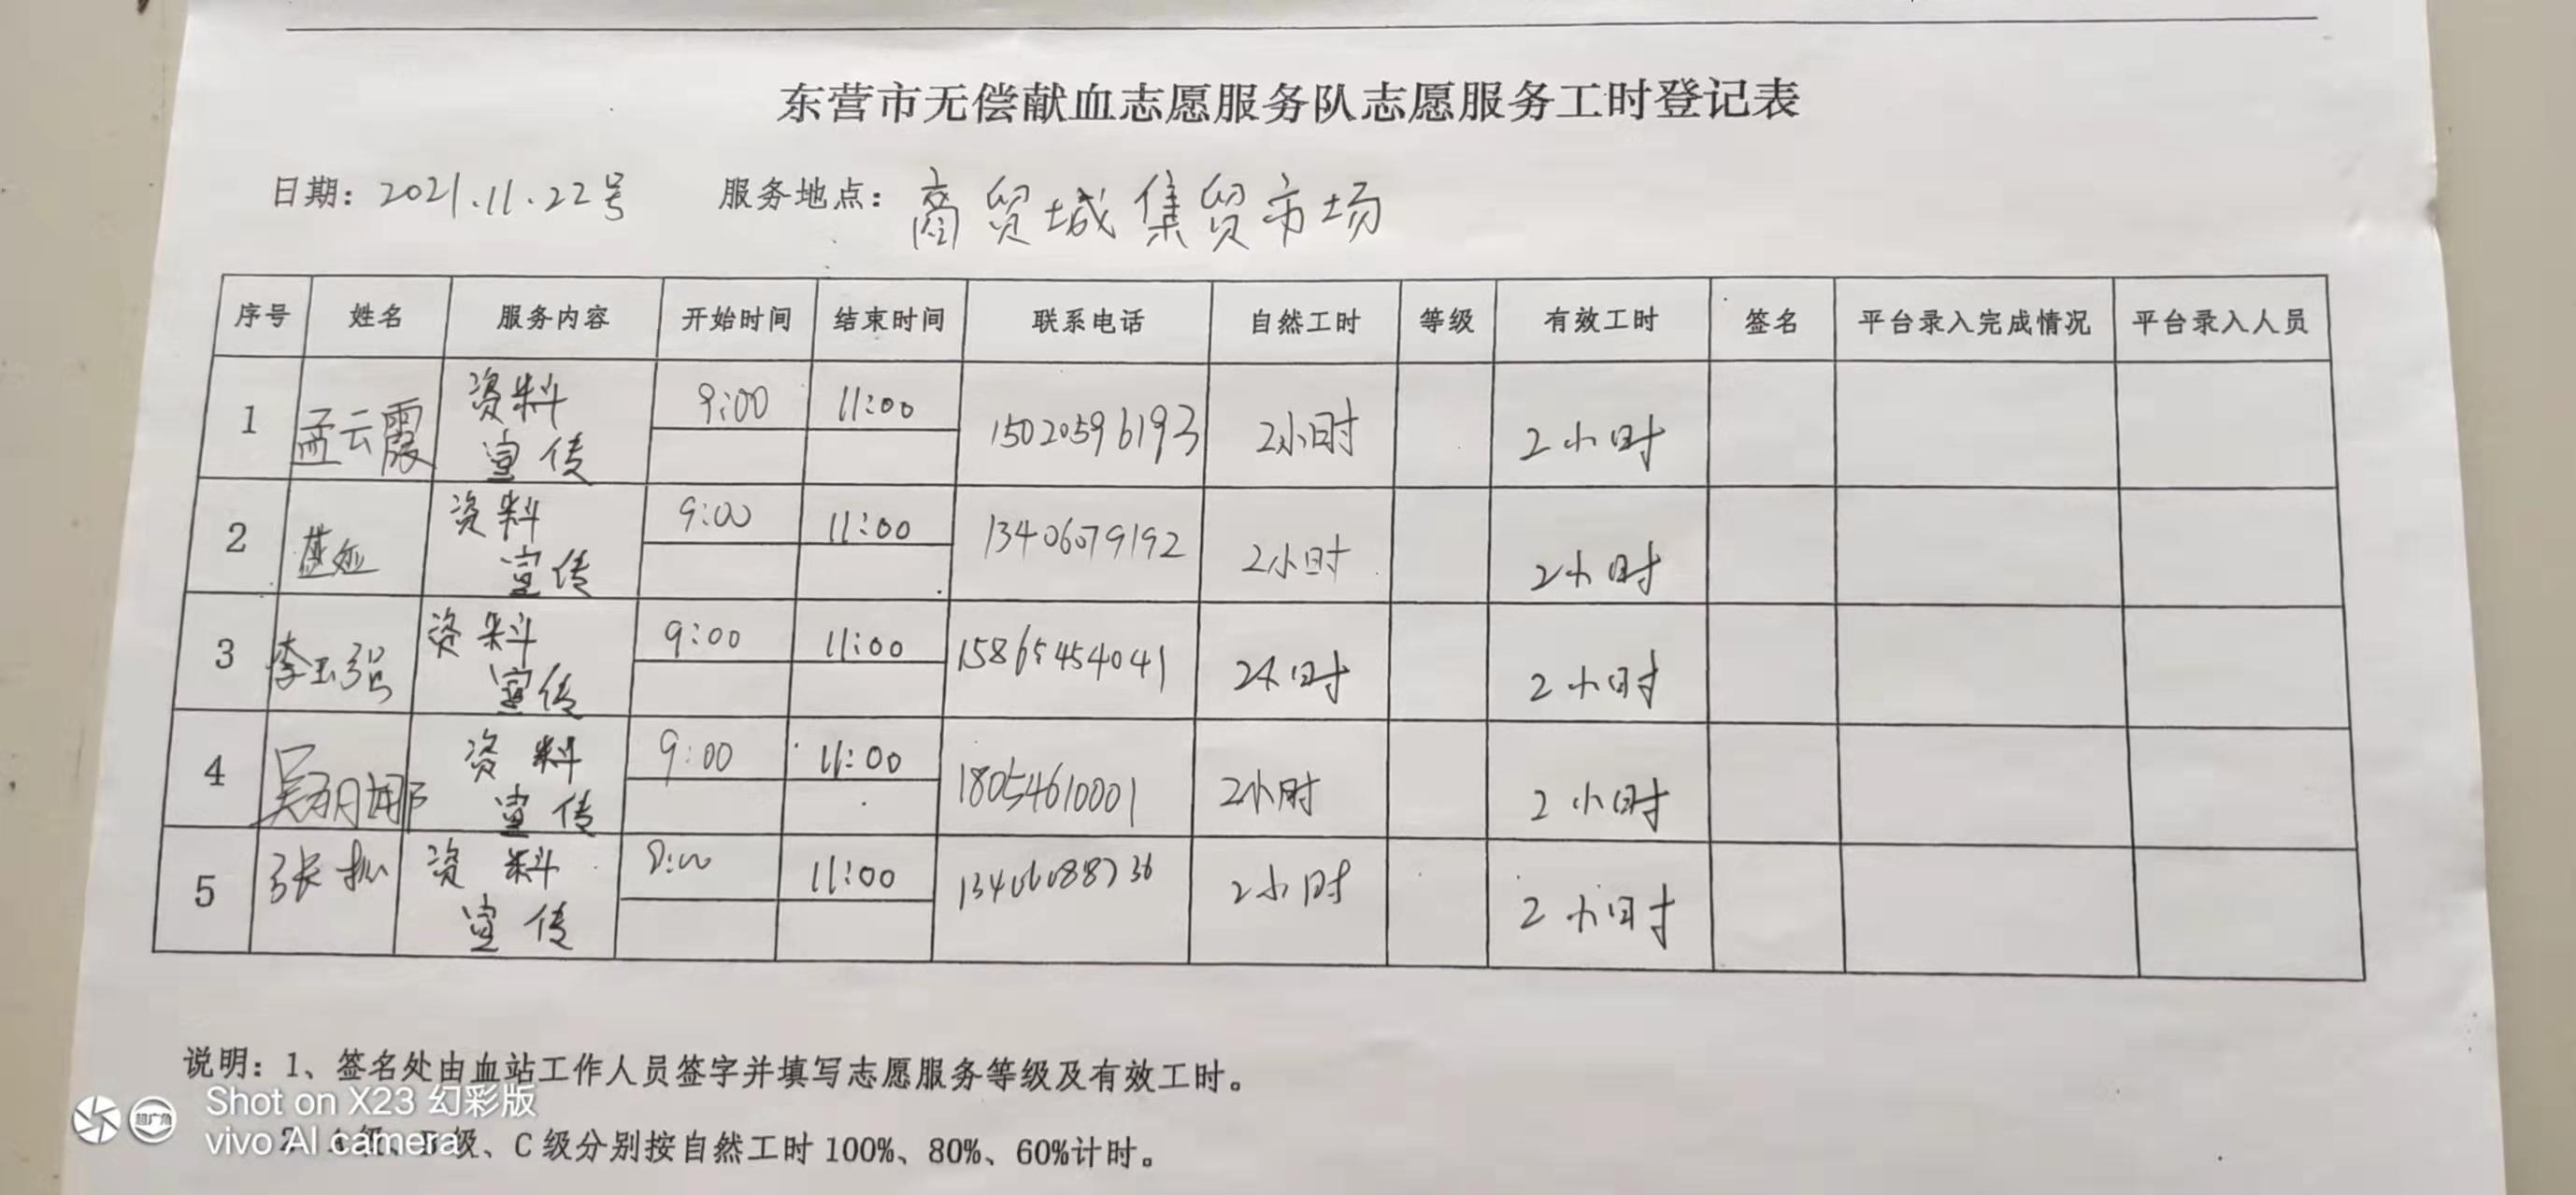 东营市无偿献血志愿服务队志愿服务工时登记表
日期：2021.11.22号 服务地点：商贸城集贸市场
序号 姓名 服务内容 开始时间 结束时间 联系电话 自然工时 等级 有效工时 签名 平台录入完成情况 平台录入人员
1 孟云霞 资料宣传 9:00 11:00 15020596193 2小时 2小时
2 资料宣传 9:00 11:00 13406079192 2小时 2小时
3 李玉强 资料宣传 9:00 11:00 15865454041 2小时 2小时
4 吴 资料宣传 9:00 11:00 18054610001 2小时 2小时
5 张 资料宣传 11:00 2小时 2小时
说明：1、签名处由血站工作人员签字并填写志愿服务等级及有效工时。
2、A级、B级、C级分别按自然工时100%、80%、60%计时。
Shot on X23 幻彩版
vivo AI camera
超广角